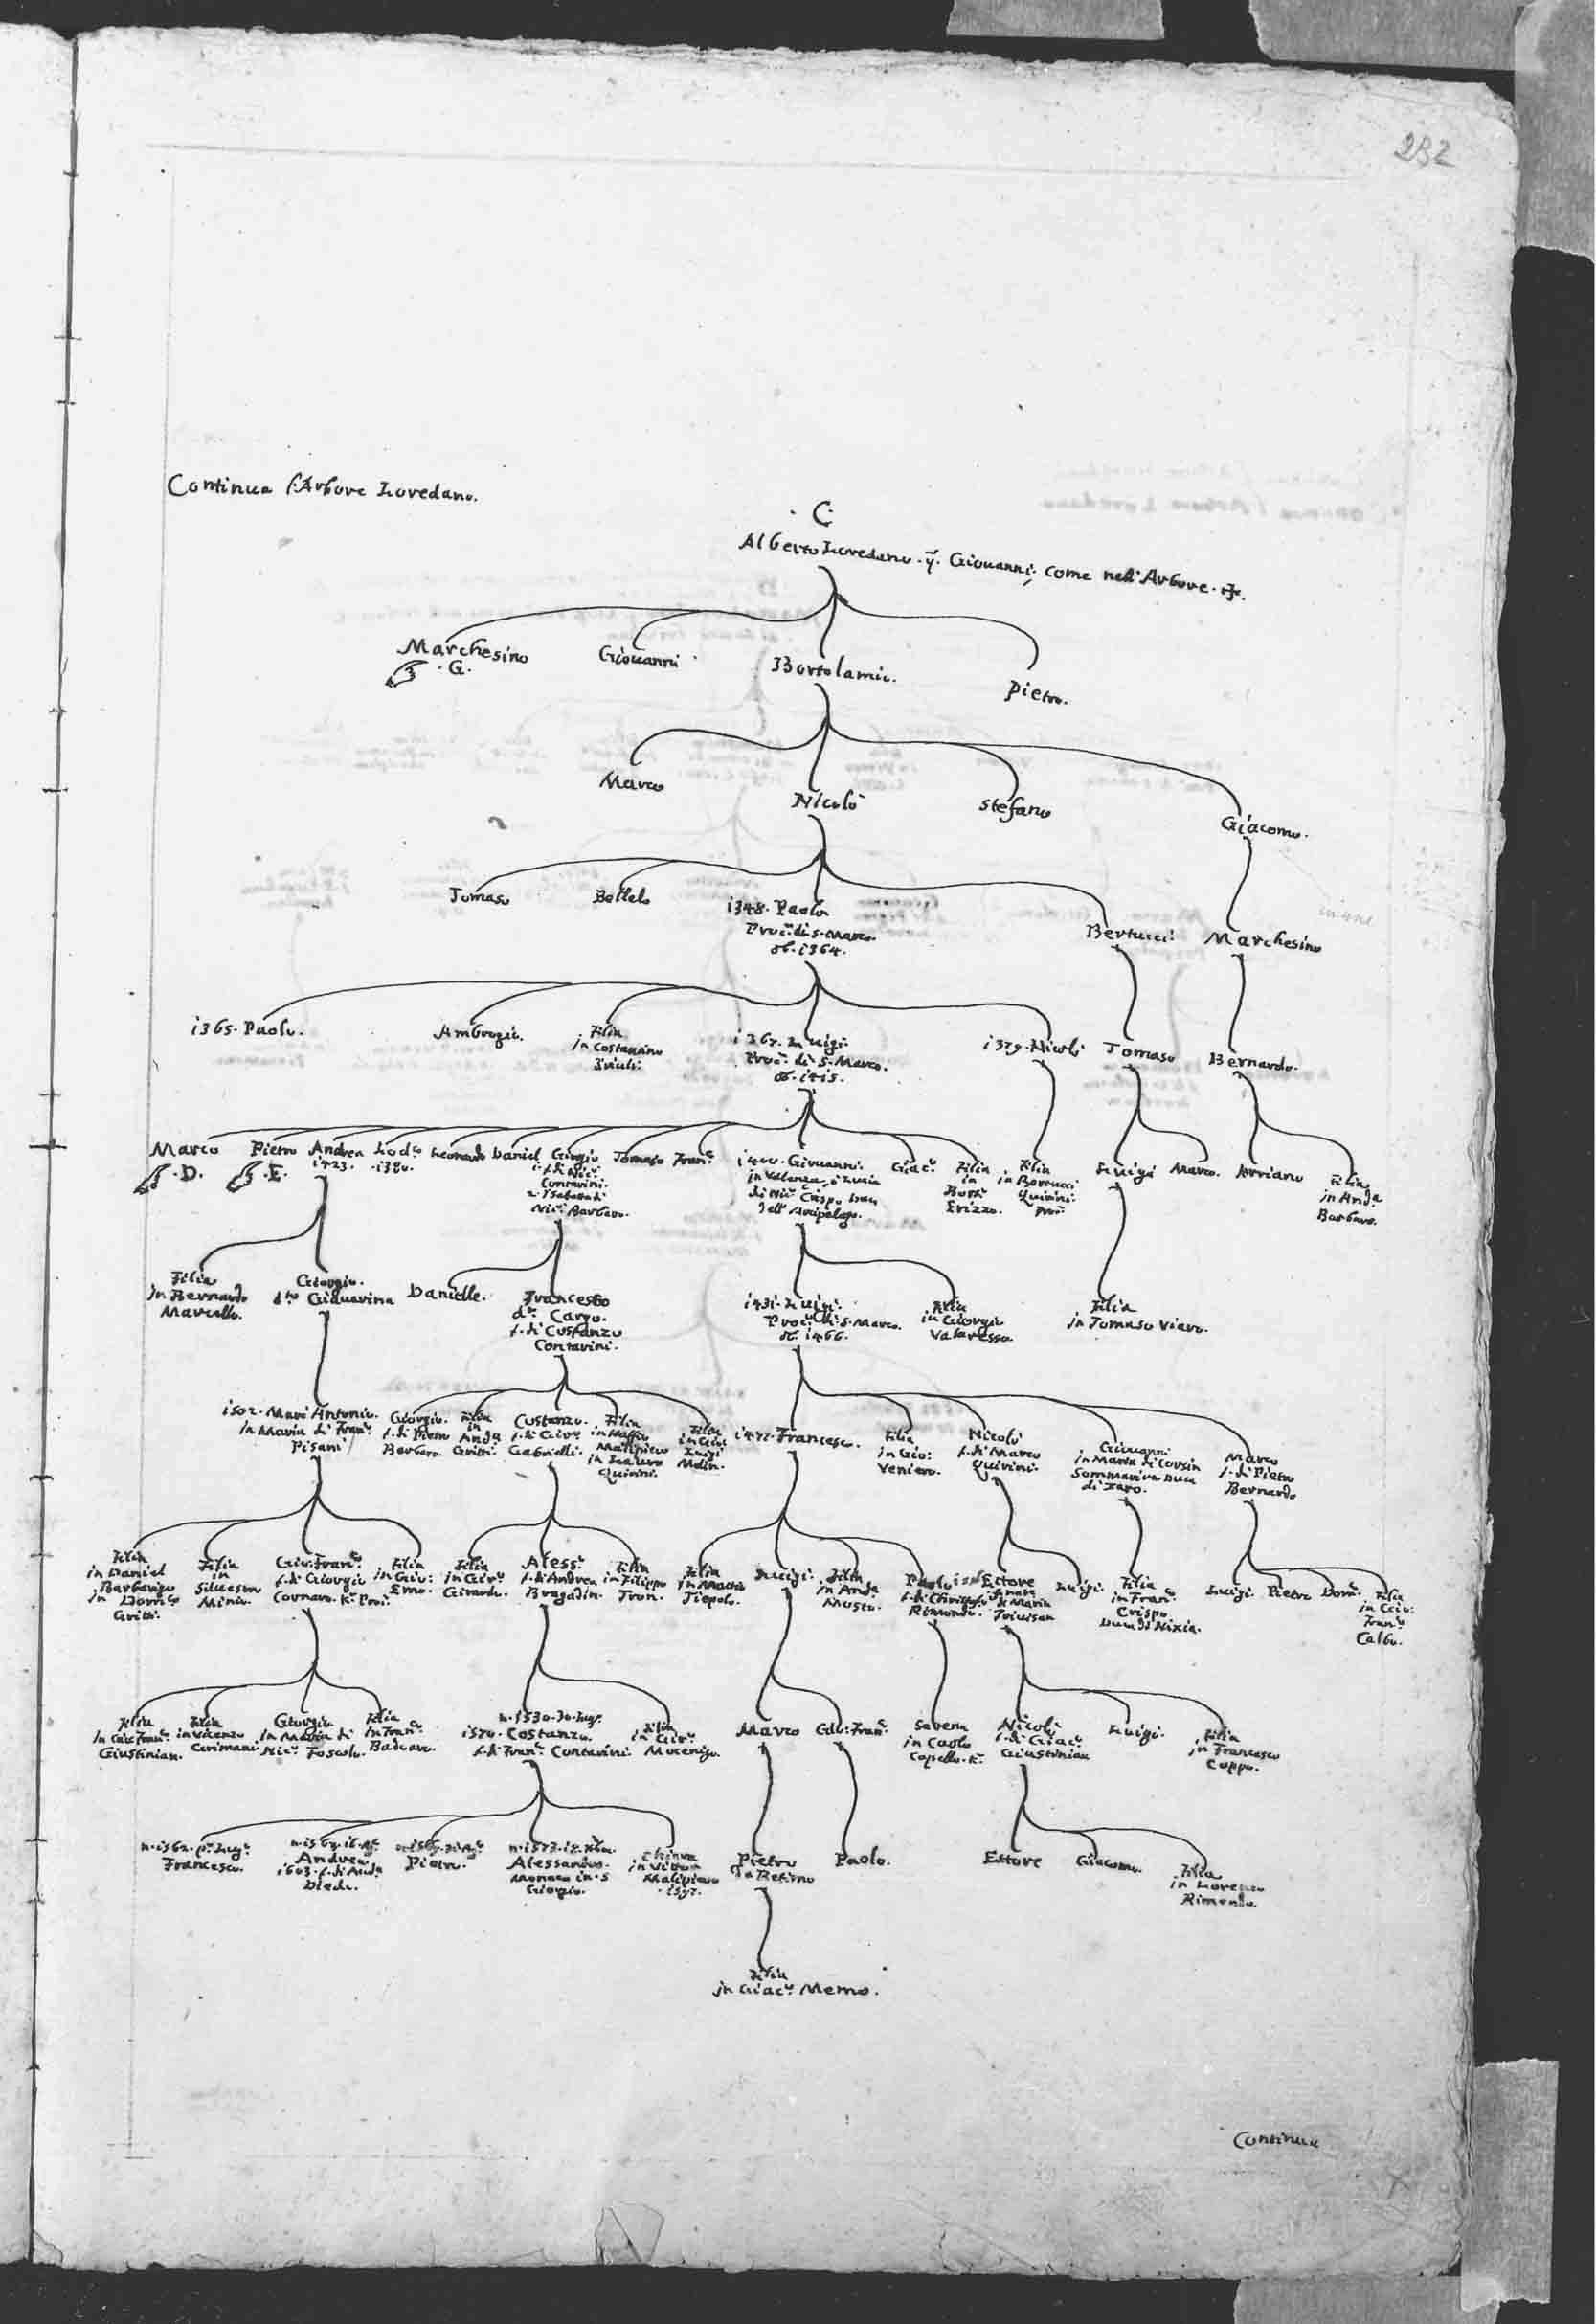 232
Continua l'Arbore Loredano.
C
Alberto Loredano. q. Giouanni, come nell'Arbore.
Marchesino
G.
Giouanni
Bortolamio.
Pietro.
Marco
Nicolò
Stefano
Giacomo.
Tomaso
Bellelo
i348. Paolo
Procr. di S. Marco.
ob. i364.
Bertucci
Marchesino
i365. Paolo.
Ambrogio.
Filia
in Costantino
i367. Luigi.
Procr. di S. Marco.
ob. i4i5.
i379. Nicolò
Tomaso
Bernardo.
Marco
D.
Pietro
E.
Andrea
i423.
Lodo
i380.
Leonardo
Daniel
Giorgio
Contarini.
Nicò Barbaro.
Tomaso
Franco
i400. Giouanni.
di Nicò Crispo Duca
dell' Arcipelago.
Giaco
Filia
in
Erizzo.
Filia
in Bortucci
Quirini
Luigi
Marco.
Arriano
Filia
in Anda
Barbaro.
Filia
in Bernardo
Marcello.
Giorgio.
dto Giquarina
Danielle.
Francesco
do Cargo.
f. di Costanzo
Contarini.
i431. Luigi.
Procr. di S. Marco.
ob. i466.
Filia
in Giorgio
Valaresso.
Filia
in Tomaso Viaro.
i502. Marc'Antonio.
in Maria di Franco
Pisani
Giorgio.
f. di Pietro
Barbaro.
Filia
in
Anda
Gritti.
Costanzo.
Gabrielli.
Filia
in Maffio
Malipiero
in Lauro
Quirini.
Filia
Luigi
Molin.
i477. Francesco.
Filia
in Gio:
Veniero.
Nicolò
f. di Marco
Quirini.
Giouanni
in Maria di Corsin
Sommariva Duca
di Zaro.
Marco
f. di Pietro
Bernardo
Filia
in Daniel
Barbarigo
in Domco
Gritti.
Filia
in
Siluestro
Minio.
Gio: Franco
f. di Giorgio
Cornaro. Kr Procr.
Filia
in Gio:
Emo.
Filia
in Giro
Girardo.
Alesso
f. di Andrea
Bragadin.
Filia
in Filippo
Tron.
Filia
in Matteo
Tiepolo.
Luigi.
Filia
in Anda
Mosto.
Paolo
f. di Christofo
Rimondo.
Ettore
di Maria
Triuisan
Luigi.
Filia
in Franco
Crispo
Duca di Nixia.
Luigi.
Pietro
Domo
Filia
in Gio:
Franco
Calbo.
Filia
in Gio: Franco
Giustinian.
Filia
in Vicenzo
Grimani
Giorgio
in Maria di
Nicò Foscolo.
Filia
in Franco
Badoaro.
n. i530. 30. Lugo
i570. Costanzo.
f. di Franco Contarini.
Filia
in Giro
Mocenigo.
Marco
Gio: Franco
Sabena
in Carlo
Capello. Kr
Nicolò
f. di Giaco
Giustinian
Luigi.
Filia
in Francesco
Coppo.
n. i562. po Lugo
Francesco.
Andrea
i603. f. di Anda
Diedo.
Pietro.
Alessandro.
Monaco in S.
Giorgio.
Chiara
in Vittor
Malipiero
Pietro
da Retimo
Paolo.
Ettore
Giacomo.
Filia
in Lorenzo
Rimondo.
Filia
in Giaco Memo.
Continua